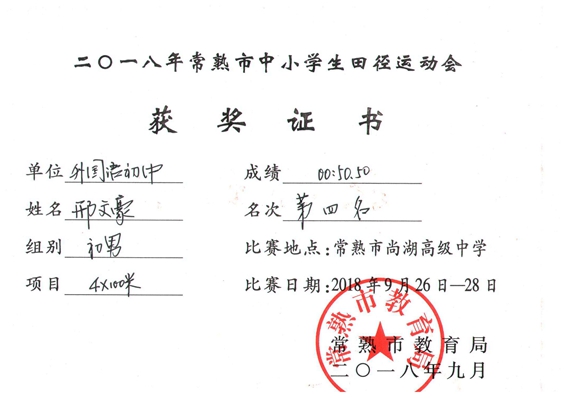 二〇一八年常熟市中小学生田径运动会
获奖证书
单位 外国语初中 成绩 00:50.50
姓名 邢文豪 名次 第四名
组别 初男 比赛地点:常熟市尚湖高级中学
项目 4×100米 比赛日期:2018年9月26日—28日
常熟市教育局
常熟市教育局
二〇一八年九月